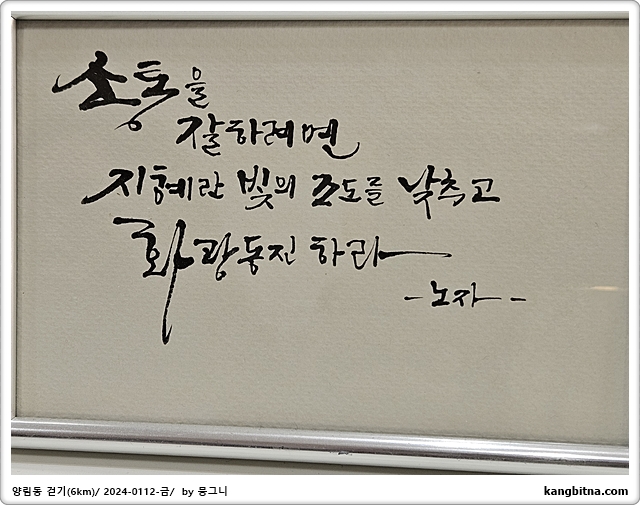 소통을
잘하려면
지혜란 빛의 조도를 낮추고
화광동진 하라
-노자-
양림동 걷기(6km)/ 2024-0112-금/ by 뭉그니
kangbitna.com